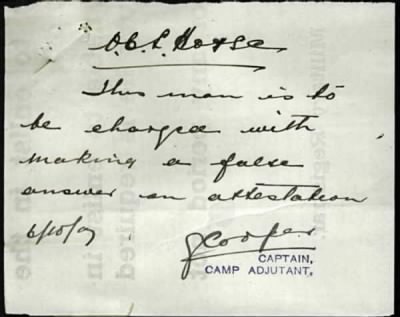 O.C. L. Horse
This man is to
be charged with
making a false
answer on attestation
G Cooper
CAPTAIN,
CAMP ADJUTANT,